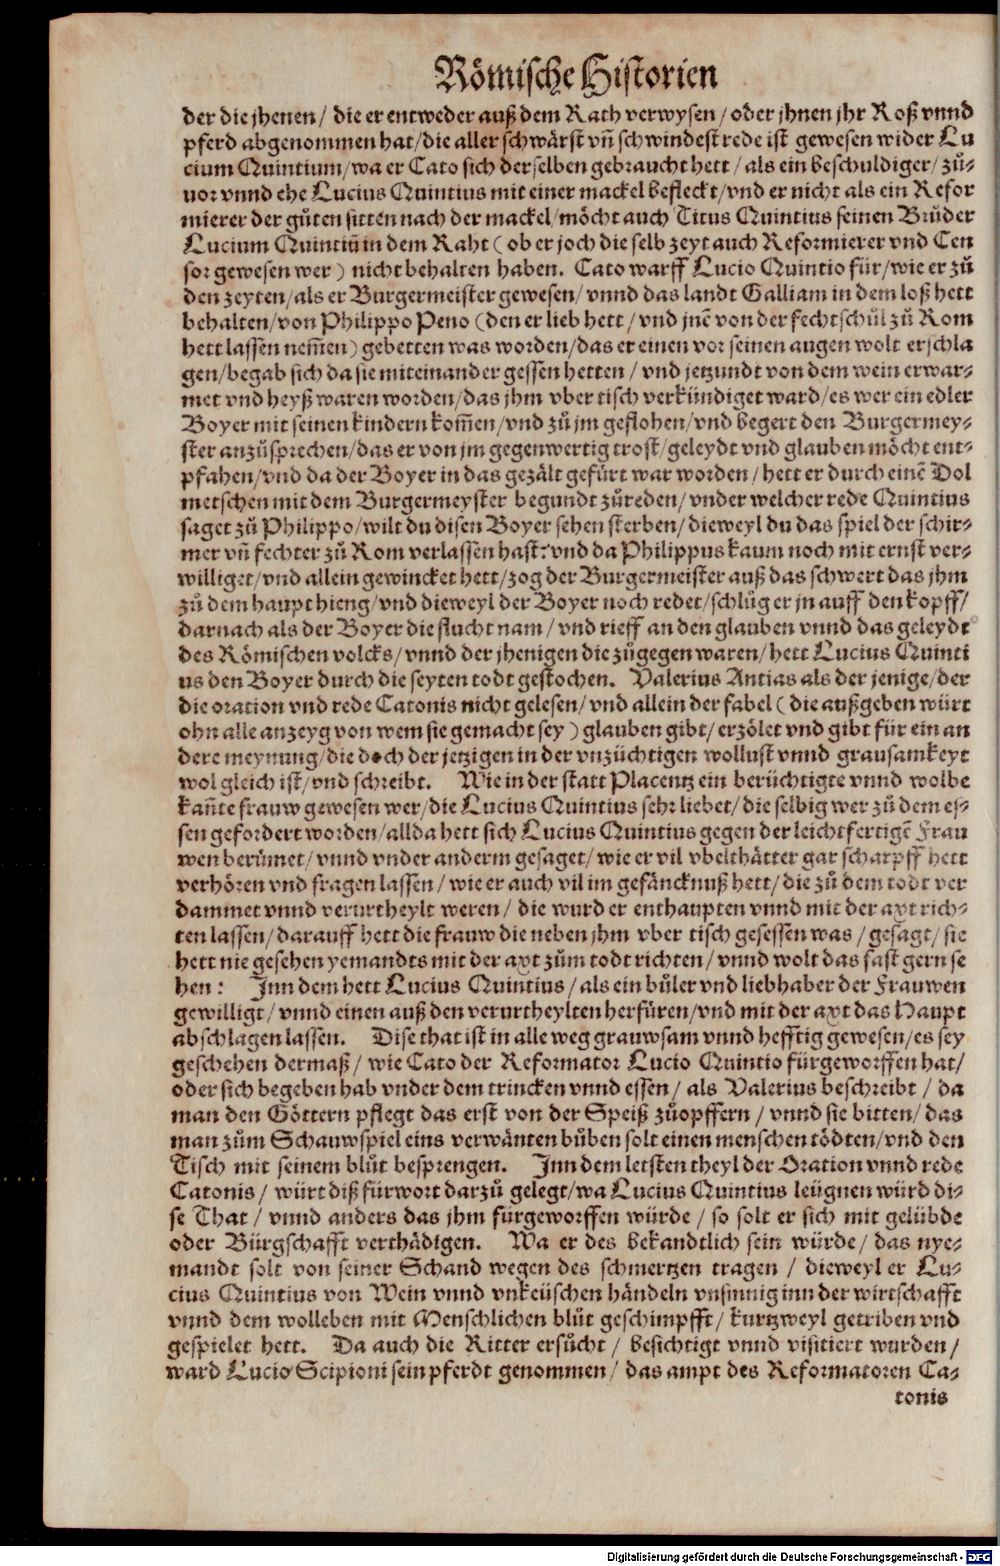 Römische Historien
der die jhenen / die er entweder auß dem Rath verwysen / oder jhnen jhr Roß vnnd
pferd abgenommen hat / die aller schwärst vñ schwindest rede ist gewesen wider Lu
cium Quintium / wa er Cato sich derselben gebraucht hett / als ein beschuldiger / zů-
uor vnnd ehe Lucius Quintius mit einer mackel befleckt / vnd er nicht als ein Refor
mierer der gůten sitten nach der mackel / möcht auch Titus Quintius seinen Brůder
Lucium Quintiũ in dem Raht ( ob er joch die selb zeyt auch Reformierer vnd Cen
sor gewesen wer ) nicht behalten haben. Cato warff Lucio Quintio für / wie er zů
den zeyten / als er Burgermeister gewesen / vnnd das landt Galliam in dem loß hett
behalten / von Philippo Peno ( den er lieb hett / vnd jnẽ von der fechtschůl zů Rom
hett lassen nem̃en ) gebetten was worden / das er einen vor seinen augen wolt erschla
gen / begab sich da sie miteinander gessen hetten / vnd jetzundt von dem wein erwar-
met vnd heyß waren worden / das jhm vber tisch verkündiget ward / es wer ein edler
Boyer mit seinen kindern kom̃en / vnd zů jm geflohen / vnd begert den Burgermey-
ster anzůsprechen / das er von jm gegenwertig trost / geleydt vnd glauben möcht ent-
pfahen / vnd da der Boyer in das gezält gefürt war worden / hett er durch einẽ Dol
metschen mit dem Burgermeyster begundt zůreden / vnder welcher rede Quintius
saget zů Philippo / wilt du disen Boyer sehen sterben / dieweyl du das spiel der schir-
mer vñ fechter zů Rom verlassen hast: vnd da Philippus kaum noch mit ernst ver-
williget / vnd allein gewincket hett / zog der Burgermeister auß das schwert das jhm
zů dem haupt hieng / vnd dieweyl der Boyer noch redet / schlůg er jn auff den kopff /
darnach als der Boyer die flucht nam / vnd rieff an den glauben vnnd das geleydt
des Römischen volcks / vnnd der jhenigen die zůgegen waren / hett Lucius Quinti
us den Boyer durch die seyten todt gestochen. Valerius Antias als der jenige / der
die oration vnd rede Catonis nicht gelesen / vnd allein der fabel ( die außgeben würt
ohn alle anzeyg von wem sie gemacht sey ) glauben gibt / erzölet vnd gibt für ein an
dere meynung / die doch der jetzigen in der vnzüchtigen wollust vnnd grausamkeyt
wol gleich ist / vnd schreibt. Wie in der statt Placentz ein berüchtigte vnnd wolbe
kañte frauw gewesen wer / die Lucius Quintius sehr liebet / die selbig wer zů dem es-
sen gefordert worden / allda hett sich Lucius Quintius gegen der leichtfertigẽ Frau
wen berümet / vnnd vnder anderm gesaget / wie er vil vbelthätter gar scharpff hett
verhören vnd fragen lassen / wie er auch vil im gefäncknuß hett / die zů dem todt ver
dammet vnnd verurtheylt weren / die wurd er enthaupten vnnd mit der axt rich-
ten lassen / darauff hett die frauw die neben jhm vber tisch gesessen was / gesagt / sie
hett nie gesehen yemandts mit der axt zům todt richten / vnnd wolt das fast gern se
hen : Jnn dem hett Lucius Quintius / als ein bůler vnd liebhaber der Frauwen
gewilligt / vnnd einen auß den verurtheylten herfüren / vnd mit der axt das Haupt
abschlagen lassen. Dise that ist in alle weg grauwsam vnnd hefftig gewesen / es sey
geschehen dermaß / wie Cato der Reformator Lucio Quintio fürgeworffen hat /
oder sich begeben hab vnder dem trincken vnnd essen / als Valerius beschreibt / da
man den Göttern pflegt das erst von der Speiß zůopffern / vnnd sie bitten / das
man zům Schauwspiel eins verwänten bůben solt einen menschen tödten / vnd den
Tisch mit seinem blůt besprengen. Jnn dem letsten theyl der Oration vnnd rede
Catonis / würt diß fürwort darzů gelegt / wa Lucius Quintius leügnen würd di-
se That / vnnd anders das jhm fürgeworffen würde / so solt er sich mit gelübde
oder Bürgschafft verthädigen. Wa er des bekandtlich sein würde / das nye-
mandt solt von seiner Schand wegen des schmertzen tragen / dieweyl er Lu-
cius Quintius von Wein vnnd vnkeüschen händeln vnsinnig inn der wirtschafft
vnnd dem wolleben mit Menschlichen blůt geschimpfft / kurtzweyl getriben vnd
gespielet hett. Da auch die Ritter ersůcht / besichtigt vnnd visitiert wurden /
ward Lucio Scipioni sein pferdt genommen / das ampt des Reformatoren Ca-
tonis
Digitalisierung gefördert durch die Deutsche Forschungsgemeinschaft - DFG